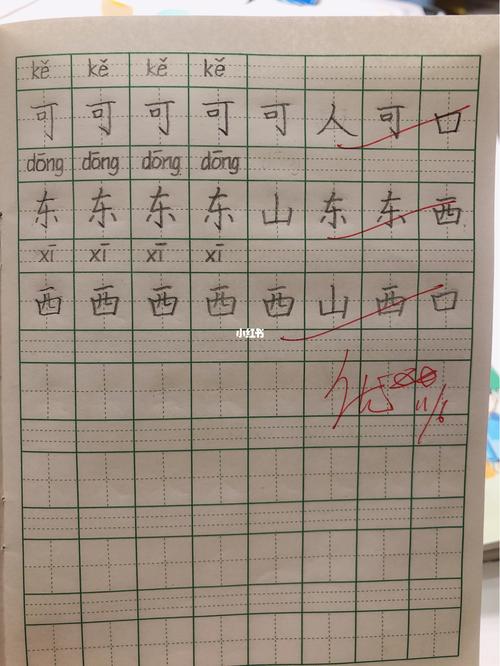 kě kě kě kě
可 可 可 可 可 人 可 口
dōng dōng dōng dōng
东 东 东 东 山 东 东 西
xī xī xī xī
西 西 西 西 西 山 西 口
小红书
优
11/6